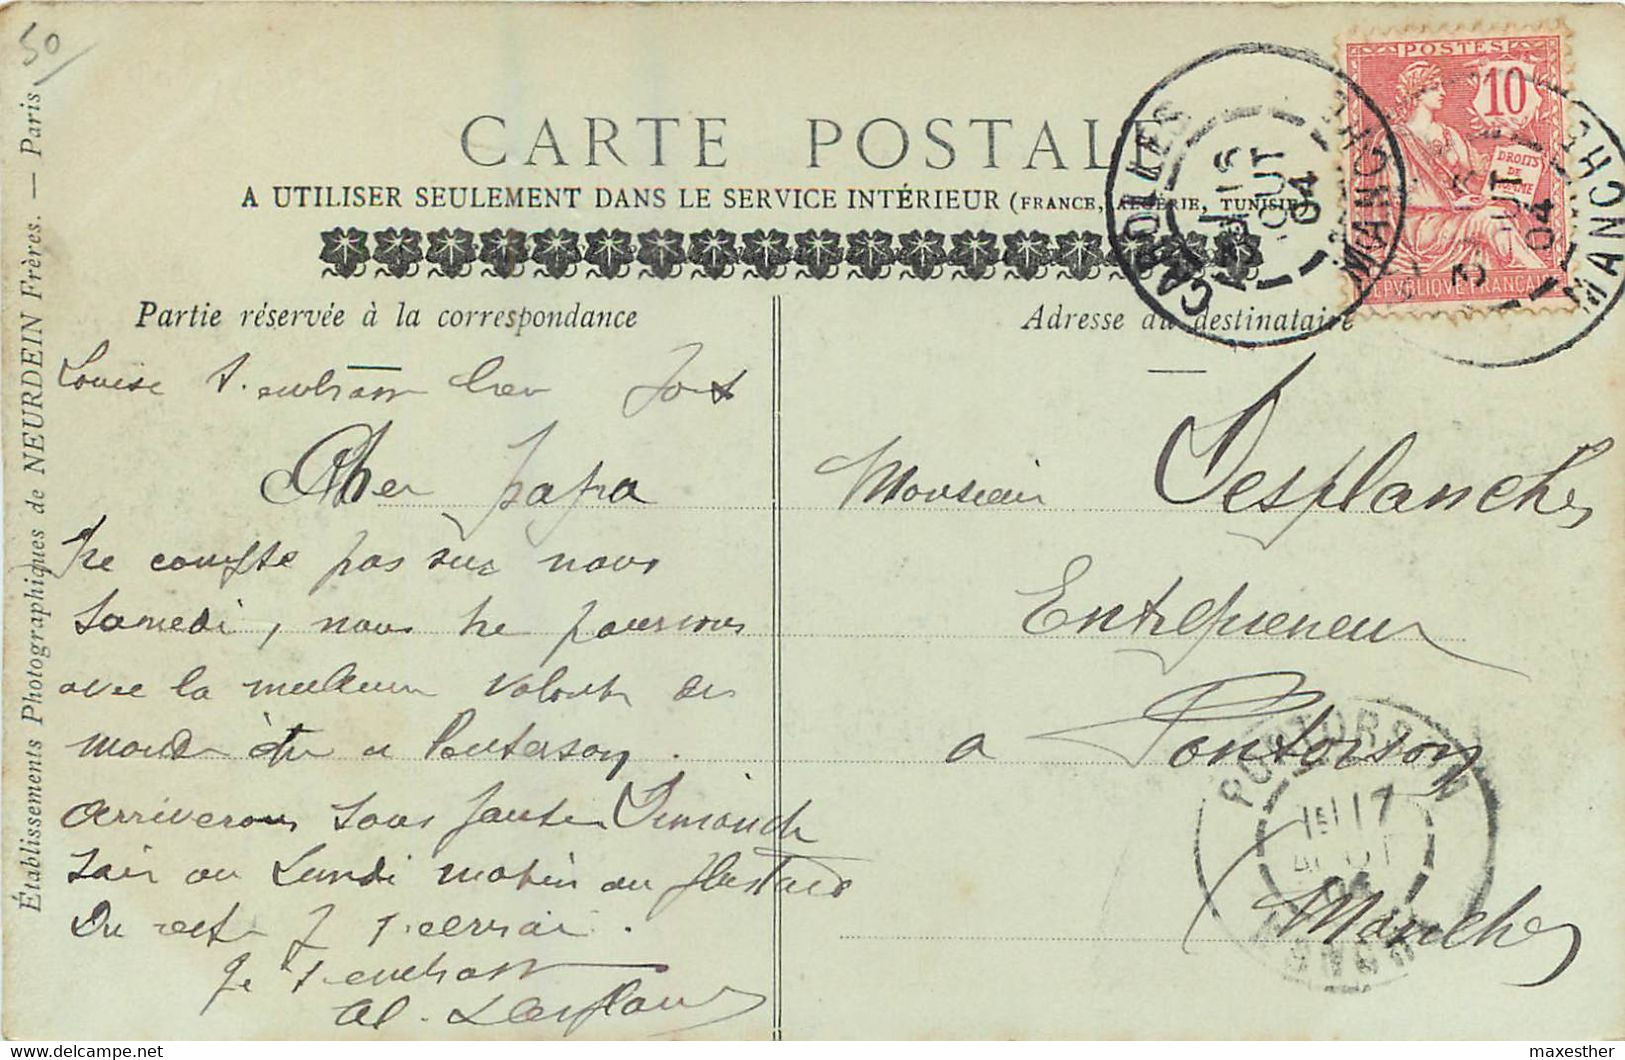 50
CARTE POSTALE
A UTILISER SEULEMENT DANS LE SERVICE INTÉRIEUR (FRANCE, ALGÉRIE, TUNISIE)
POSTES
10
DROITS
DE
L'HOMME
REPVBLIQVE FRANÇAISE
CAROLLES
16
AOUT
04
MANCHE
16
AOUT
04
MANCHE
Partie réservée à la correspondance
Louise t'embrasse bien fort
Cher papa
Ne compte pas sur nous
Samedi, nous ne pourrons
avec la meilleure volonté du
monde être a Pontorson.
arriverons sans faute Dimanche
soir ou Lundi matin au plus tard
Du reste je t'ecrirai.
Je t'embrasse
Al. Desplanches
Adresse du destinataire
Monsieur Desplanches
Entrepreneur
a Pontorson
Manche
PONTORSON
17
AOUT
04
MANCHE
Établissements Photographiques de NEURDEIN Frères. — Paris
delcampe.net
maxesther